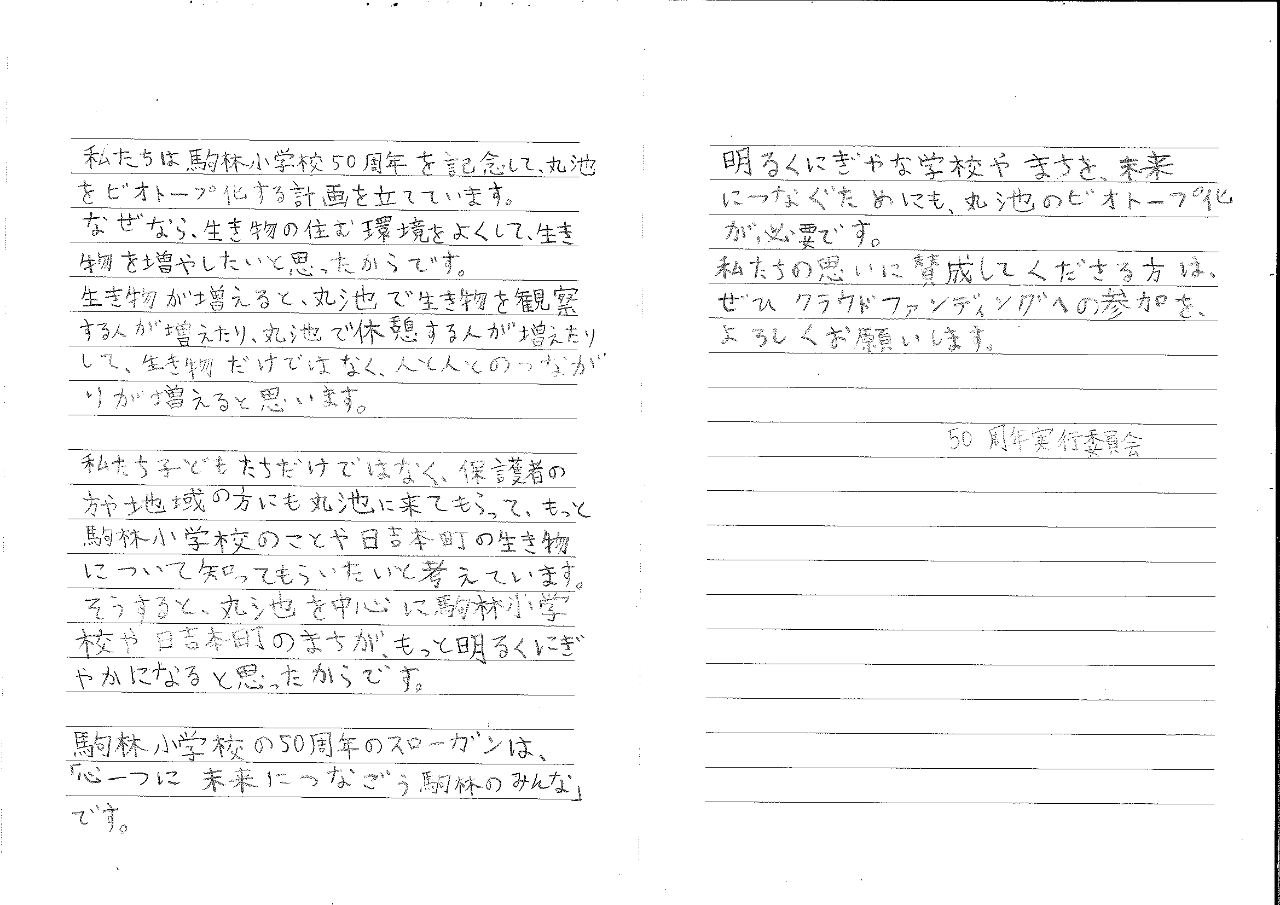 私たちは駒林小学校50周年を記念して、丸池
をビオトープ化する計画を立てています。
なぜなら、生き物の住む環境をよくして、生き
物を増やしたいと思ったからです。
生き物が増えると、丸池で生き物を観察
する人が増えたり、丸池で休憩する人が増えたり
して、生き物だけではなく、人と人とのつなが
りが増えると思います。
私たち子どもたちだけではなく、保護者の
方や地域の方にも丸池に来てもらって、もっと
駒林小学校のことや日吉本町の生き物
について知ってもらいたいと考えています。
そうすると、丸池を中心に駒林小学
校や日吉本町のまちが、もっと明るくにぎ
やかになると思ったからです。
駒林小学校の50周年のスローガンは、
「心一つに 未来につなごう駒林のみんな」
です。
明るくにぎやな学校やまちを、未来
につなぐためにも、丸池のビオトープ化
が必要です。
私たちの思いに賛成してくださる方は、
ぜひクラウドファンディングへの参加を、
よろしくお願いします。
50周年実行委員会